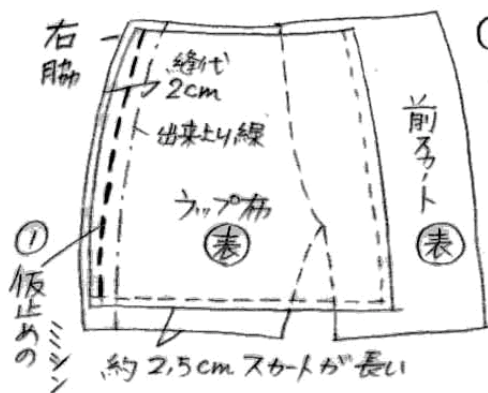 右脇
縫代
2cm
出来上り線
ラップ布
表
前スカート
表
①仮止めのミシン
約2,5cm スカートが長い